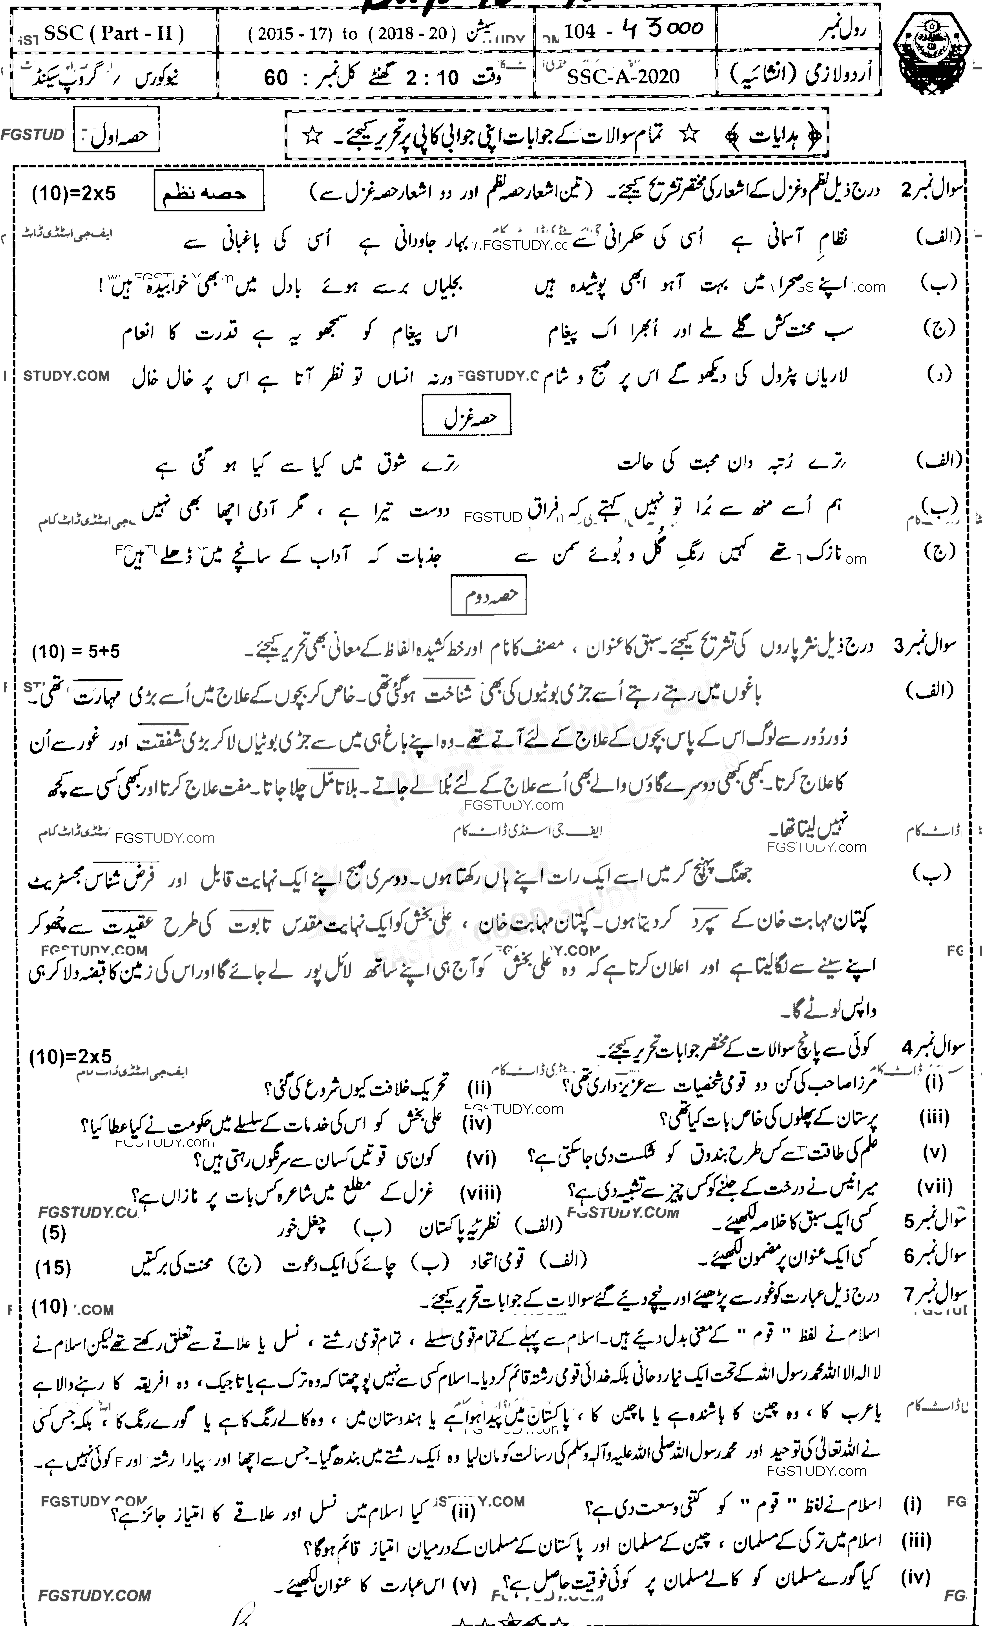 SSC ( Part - II ) ( 2015 - 17 ) to ( 2018 - 20 ) سیشن 104 - 43000 رول نمبر
نیو کورس ، گروپ سیکنڈ وقت 2 : 10 گھنٹے کل نمبر : 60 SSC-A-2020 اُردو لازمی (انشائیہ)
FGSTUD حصہ اول : ☆ تمام سوالات کے جوابات اپنی جوابی کاپی پر تحریر کیجئے۔ ☆ ﴿ ہدایات ﴾
سوال نمبر 2 درج ذیل نظم و غزل کے اشعار کی مختصر تشریح کیجئے۔ (تین اشعار حصہ نظم اور دو اشعار حصہ غزل سے) حصہ نظم (10)=2x5
(الف) نظامِ آسمانی ہے اُسی کی حکمرانی سے بہارِ جاودانی ہے اُسی کی باغبانی سے
(ب) اپنے صحرا میں بہت آہو ابھی پوشیدہ ہیں بجلیاں برسے ہوئے بادل میں بھی خوابیدہ ہیں!
(ج) سب محنت کش گلے ملے اور اُبھرا اک پیغام اس پیغام کو سمجھو یہ ہے قدرت کا انعام
(د) لاریاں پٹرول کی دیکھو گے اس پر صبح و شام ورنہ انساں تو نظر آتا ہے اس پر خال خال
حصہ غزل
(الف) ترے رُتبہ دان محبت کی حالت ترے شوق میں کیا سے کیا ہو گئی ہے
(ب) ہم اُسے منھ سے بُرا تو نہیں کہتے کہ فراق دوست تیرا ہے ، مگر آدمی اچھا بھی نہیں
(ج) نازک تھے کہیں رنگِ گل و بُوئے سمن سے جذبات کہ آداب کے سانچے میں ڈھلے ہیں
حصہ دوم
سوال نمبر 3 درج ذیل نثر پاروں کی تشریح کیجئے۔ سبق کا عنوان ، مصنف کا نام اور خط کشیدہ الفاظ کے معانی بھی تحریر کیجئے۔ (10) = 5+5
(الف) باغوں میں رہتے رہتے اُسے جڑی بوٹیوں کی بھی شناخت ہو گئی تھی۔ خاص کر بچوں کے علاج میں اُسے بڑی مہارت تھی۔
دُور دُور سے لوگ اس کے پاس بچوں کے علاج کے لئے آتے تھے۔ وہ اپنے باغ ہی میں سے جڑی بوٹیاں لا کر بڑی شفقت اور غور سے اُن
کا علاج کرتا۔ کبھی کبھی دوسرے گاؤں والے بھی اُسے علاج کے لئے بُلا لے جاتے۔ بلا تامل چلا جاتا۔ مفت علاج کرتا اور کبھی کسی سے کچھ
نہیں لیتا تھا۔
(ب) جھنگ پہنچ کر میں اسے ایک رات اپنے ہاں رکھتا ہوں۔ دوسری صبح اپنے ایک نہایت قابل اور فرض شناس مجسٹریٹ
کپتان مہابت خان کے سپرد کر دیتا ہوں۔ کپتان مہابت خان ، علی بخش کو ایک نہایت مقدس تابوت کی طرح عقیدت سے چھو کر
اپنے سینے سے لگا لیتا ہے اور اعلان کرتا ہے کہ وہ علی بخش کو آج ہی اپنے ساتھ لائل پور لے جائے گا اور اس کی زمین کا قبضہ دلا کر ہی
واپس لوٹے گا۔
سوال نمبر 4 کوئی سے پانچ سوالات کے مختصر جوابات تحریر کیجئے۔ (10)=2x5
(i) مرزا صاحب کی کن دو قومی شخصیات سے عزیز داری تھی؟ (ii) تحریک خلافت کیوں شروع کی گئی؟
(iii) پرستان کے پھلوں کی خاص بات کیا تھی؟ (iv) علی بخش کو اس کی خدمات کے سلسلے میں حکومت نے کیا عطا کیا؟
(v) علم کی طاقت سے کس طرح بندوق کو شکست دی جا سکتی ہے؟ (vi) کون سی قوتیں کسان سے سرنگوں رہتی ہیں؟
(vii) میر انیس نے درخت کے جلنے کو کس چیز سے تشبیہ دی ہے؟ (viii) غزل کے مطلع میں شاعرہ کس بات پر نازاں ہے؟
سوال نمبر 5 کسی ایک سبق کا خلاصہ لکھیئے۔ (الف) نظریۂ پاکستان (ب) چغل خور (5)
سوال نمبر 6 کسی ایک عنوان پر مضمون لکھیئے۔ (الف) قومی اتحاد (ب) چائے کی ایک دعوت (ج) محنت کی برکتیں (15)
سوال نمبر 7 درج ذیل عبارت کو غور سے پڑھیئے اور نیچے دیئے گئے سوالات کے جوابات تحریر کیجئے۔ (10)
اسلام نے لفظ " قوم " کے معنی بدل دیئے ہیں۔ اسلام سے پہلے کے تمام قومی سلسلے ، تمام قومی رشتے ، نسل یا علاقے سے تعلق رکھتے تھے لیکن اسلام نے
لا الہ الا اللہ محمد رسول اللہ کے تحت ایک نیا روحانی بلکہ خدائی قومی رشتہ قائم کر دیا۔ اسلام کسی سے نہیں پوچھتا کہ وہ ترک ہے یا تاجیک ، وہ افریقہ کا رہنے والا ہے
یا عرب کا ، وہ چین کا باشندہ ہے یا ماچین کا ، پاکستان میں پیدا ہوا ہے یا ہندوستان میں ، وہ کالے رنگ کا ہے یا گورے رنگ کا ، بلکہ جس کسی
نے اللہ تعالیٰ کی توحید اور محمد رسول اللہ صلی اللہ علیہ و آلہ وسلم کی رسالت کو مان لیا وہ ایک رشتے میں بندھ گیا۔ جس سے اچھا اور پیارا رشتہ اور کوئی نہیں ہے۔
(i) اسلام نے لفظ " قوم " کو کتنی وسعت دی ہے؟ (ii) کیا اسلام میں نسل اور علاقے کا امتیاز جائز ہے؟
(iii) اسلام میں ترکی کے مسلمان ، چین کے مسلمان اور پاکستان کے مسلمان کے درمیان امتیاز قائم ہو گا؟
(iv) کیا گورے مسلمان کو کالے مسلمان پر کوئی فوقیت حاصل ہے؟ (v) اس عبارت کا عنوان لکھیئے۔
FGSTUDY.COM